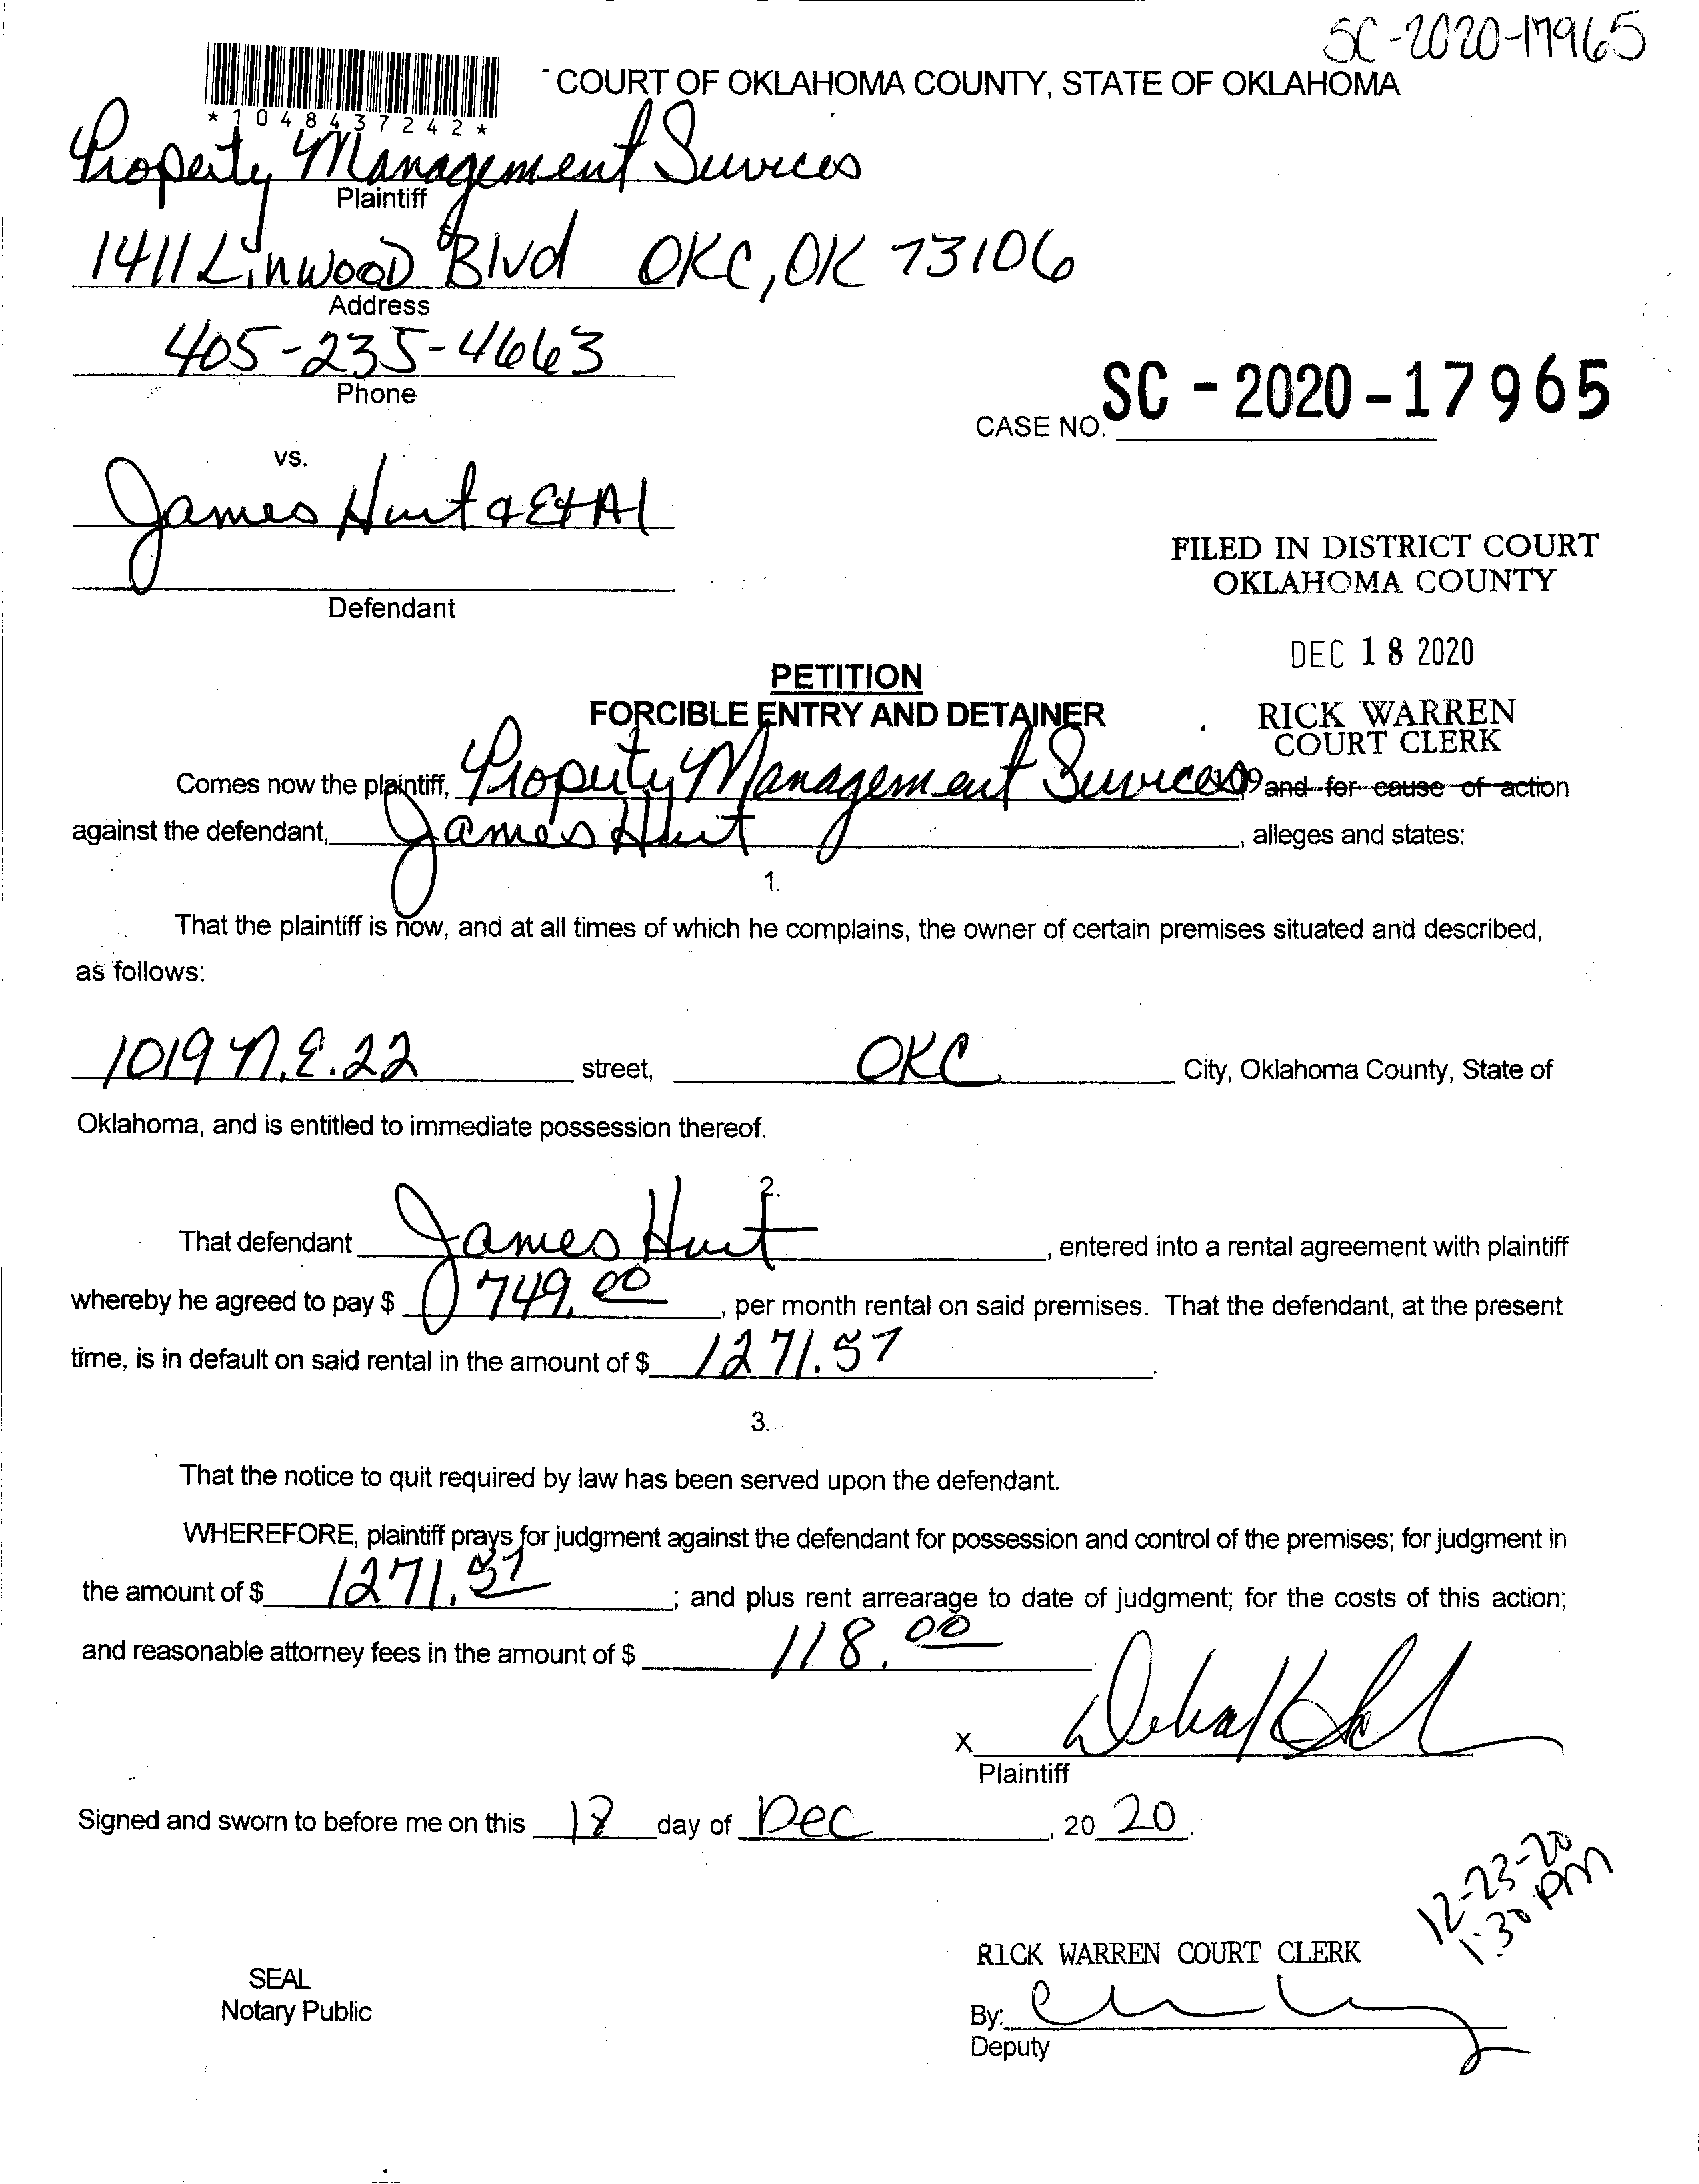 SC-2020-17965
COURT OF OKLAHOMA COUNTY, STATE OF OKLAHOMA
*1048437242*
Property Management Services
Plaintiff
1411 Linwood Blvd OKC, OK 73106
Address
405-235-4663
Phone
CASE NO. SC-2020-17965
vs.
James Hurt & Et Al
FILED IN DISTRICT COURT
OKLAHOMA COUNTY
Defendant
DEC 18 2020
PETITION
FORCIBLE ENTRY AND DETAINER
RICK WARREN
COURT CLERK
Comes now the plaintiff, Property Management Services 109 and for cause of action
against the defendant, James Hurt, alleges and states:
1.
That the plaintiff is now, and at all times of which he complains, the owner of certain premises situated and described,
as follows:
1019 N.E. 22 street, OKC City, Oklahoma County, State of
Oklahoma, and is entitled to immediate possession thereof.
2.
That defendant James Hurt, entered into a rental agreement with plaintiff
whereby he agreed to pay $ 749.00, per month rental on said premises. That the defendant, at the present
time, is in default on said rental in the amount of $ 1271.57.
3.
That the notice to quit required by law has been served upon the defendant.
WHEREFORE, plaintiff prays for judgment against the defendant for possession and control of the premises; for judgment in
the amount of $ 1271.57; and plus rent arrearage to date of judgment; for the costs of this action;
and reasonable attorney fees in the amount of $ 118.00
X
Plaintiff
Signed and sworn to before me on this 18 day of Dec, 20 20.
12-23-20
1:30 PM
RICK WARREN COURT CLERK
SEAL
Notary Public
By:
Deputy